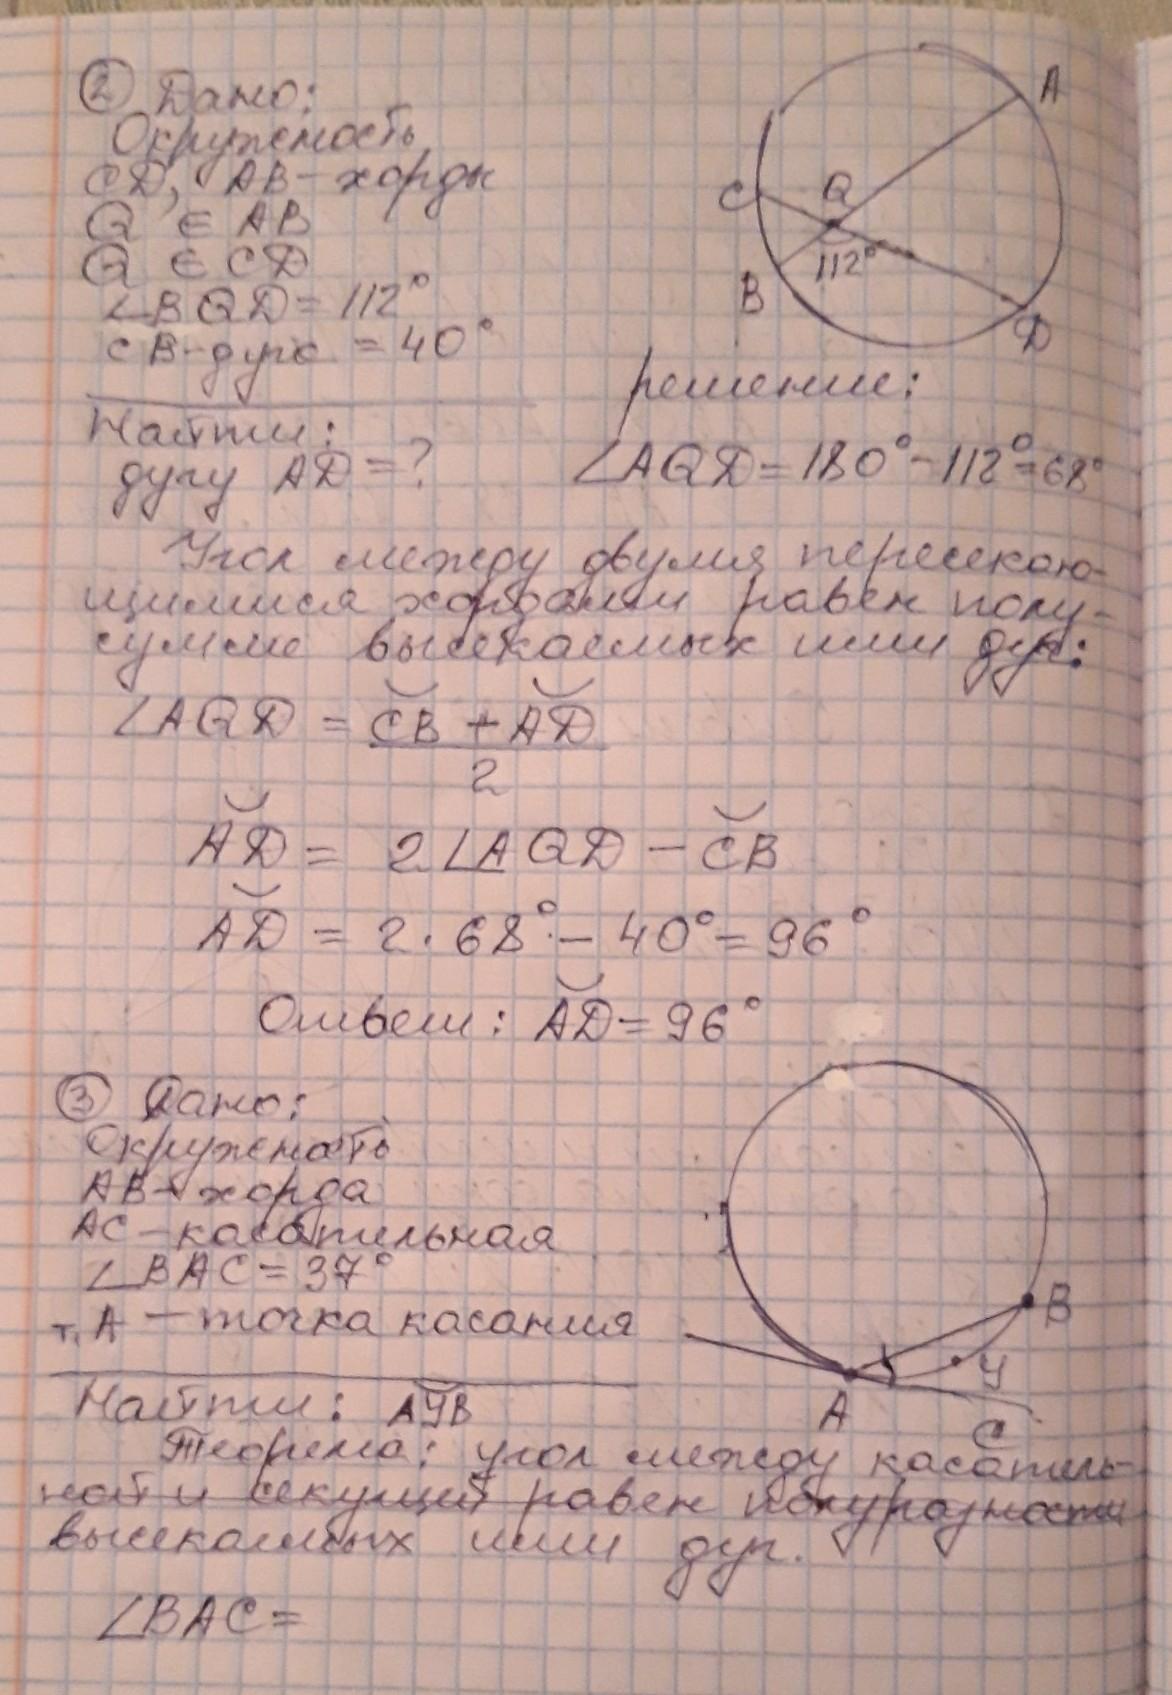 ② Дано:
Окружность
CD, AB - хорды
Q ∈ AB
Q ∈ CD
∠BQD = 112°
CB - дуга = 40°
Найти:
дугу AD = ?
A
C
Q
112°
B
D
решение:
∠AQD = 180° - 112° = 68°
Угол между двумя пересекаю-
щимися хордами равен полу-
сумме высекаемых ими дуг:
∠AQD = (C͝B + A͝D) / 2
A͝D = 2∠AQD - C͝B
A͝D = 2 · 68° - 40° = 96°
Ответ: A͝D = 96°
③ Дано:
Окружность
AB - хорда
AC - касательная
∠BAC = 37°
т. A - точка касания
Найти: AY͝B
B
У
A
C
Теорема: угол между касатель-
ной и секущей равен полуразности
высекаемых ими дуг.
∠BAC =